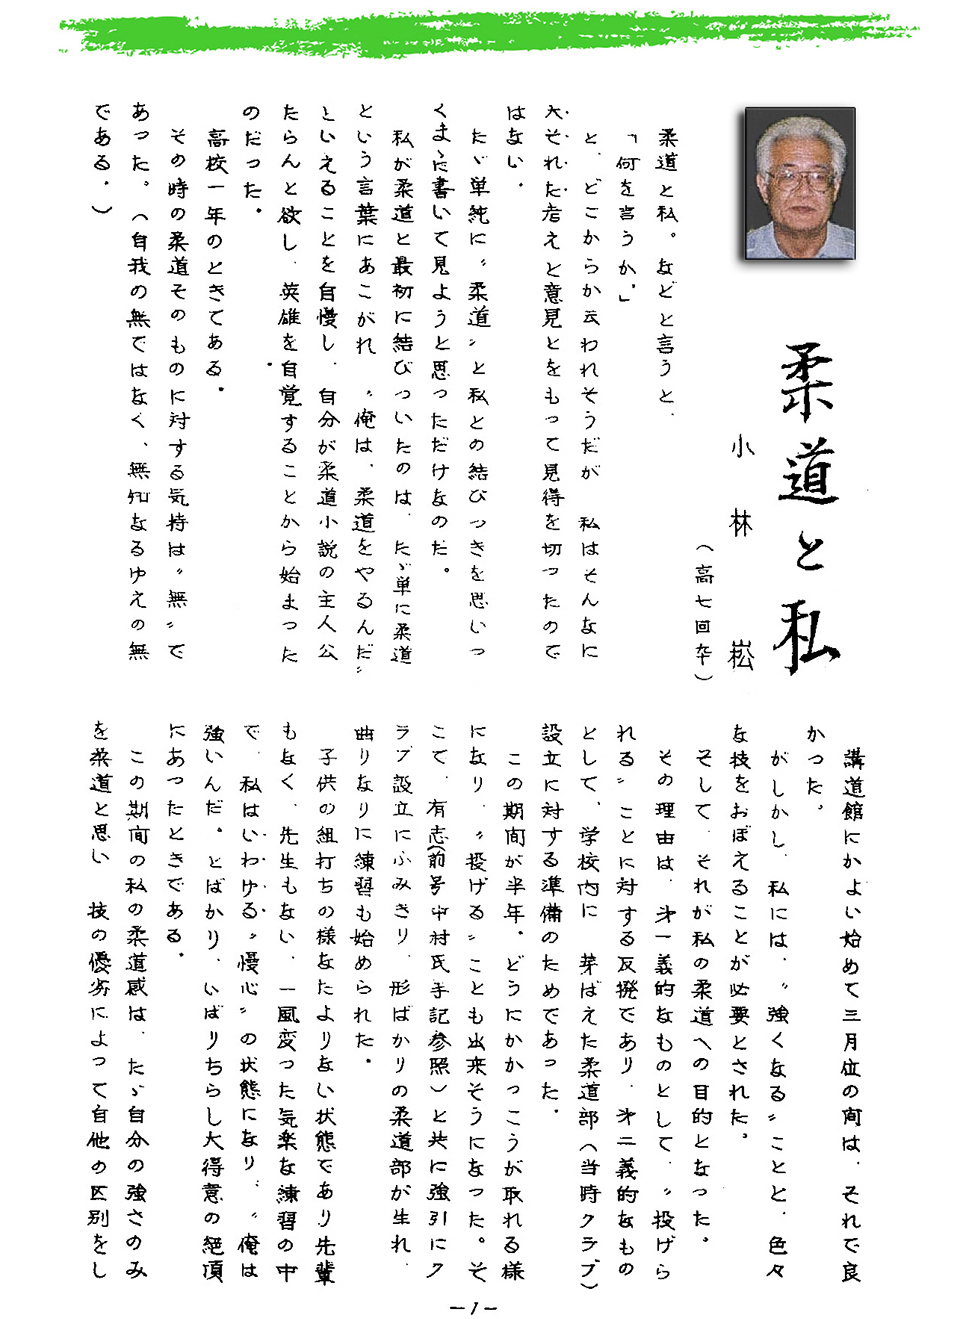 柔道と私
小林 崧
（高七回卆）
柔道と私。などと言うと、
「何を言うか。」
と、どこからか云われそうだが 私はそんなに
大それた考えと意見とをもって見得を切ったので
はない．
たゞ単純に〝柔道〟と私との結びつきを思いつ
くまゝに書いて見ようと思っただけなのだ。
私が柔道と最初に結びついたのは、たゞ単に柔道
という言葉にあこがれ 〝俺は、柔道をやるんだ〟
といえることを自慢し、自分が柔道小説の主人公
たらんと欲し、英雄を自覚することから始まった
のだった。
高校一年のときである。
その時の柔道そのものに対する気持は〝無〟で
あった。（自我の無ではなく、無知なるゆえの無
である。）
講道館にかよい始めて三月位の間は、それで良
かった。
がしかし、私には、〝強くなる〟ことと、色々
な技をおぼえることが必要とされた。
そして、それが私の柔道への目的となった。
その理由は、才一義的なものとして、〝投げら
れる〟ことに対する反撥であり、才二義的なもの
として、学校内に 芽ばえた柔道部（当時クラブ）
設立に対する準備のためであった．
この期間が半年。どうにかかっこうが取れる様
になり、〝投げる〟ことも出来そうになった。そ
こで、有志（前号中村氏手記参照）と共に強引にク
ラブ設立にふみきり、形ばかりの柔道部が生れ、
曲りなりに練習も始められた．
子供の組打ちの様なたよりない状態であり先輩
もなく、先生もない、一風変った気楽な練習の中
で、私はいわゆる〝慢心〟の状態になり、〝俺は
強いんだ。とばかり、いばりちらし大得意の絶頂
にあったときである．
この期間の私の柔道感は、たゞ自分の強さのみ
を柔道と思い 技の優劣によって自他の区別をし
－1－